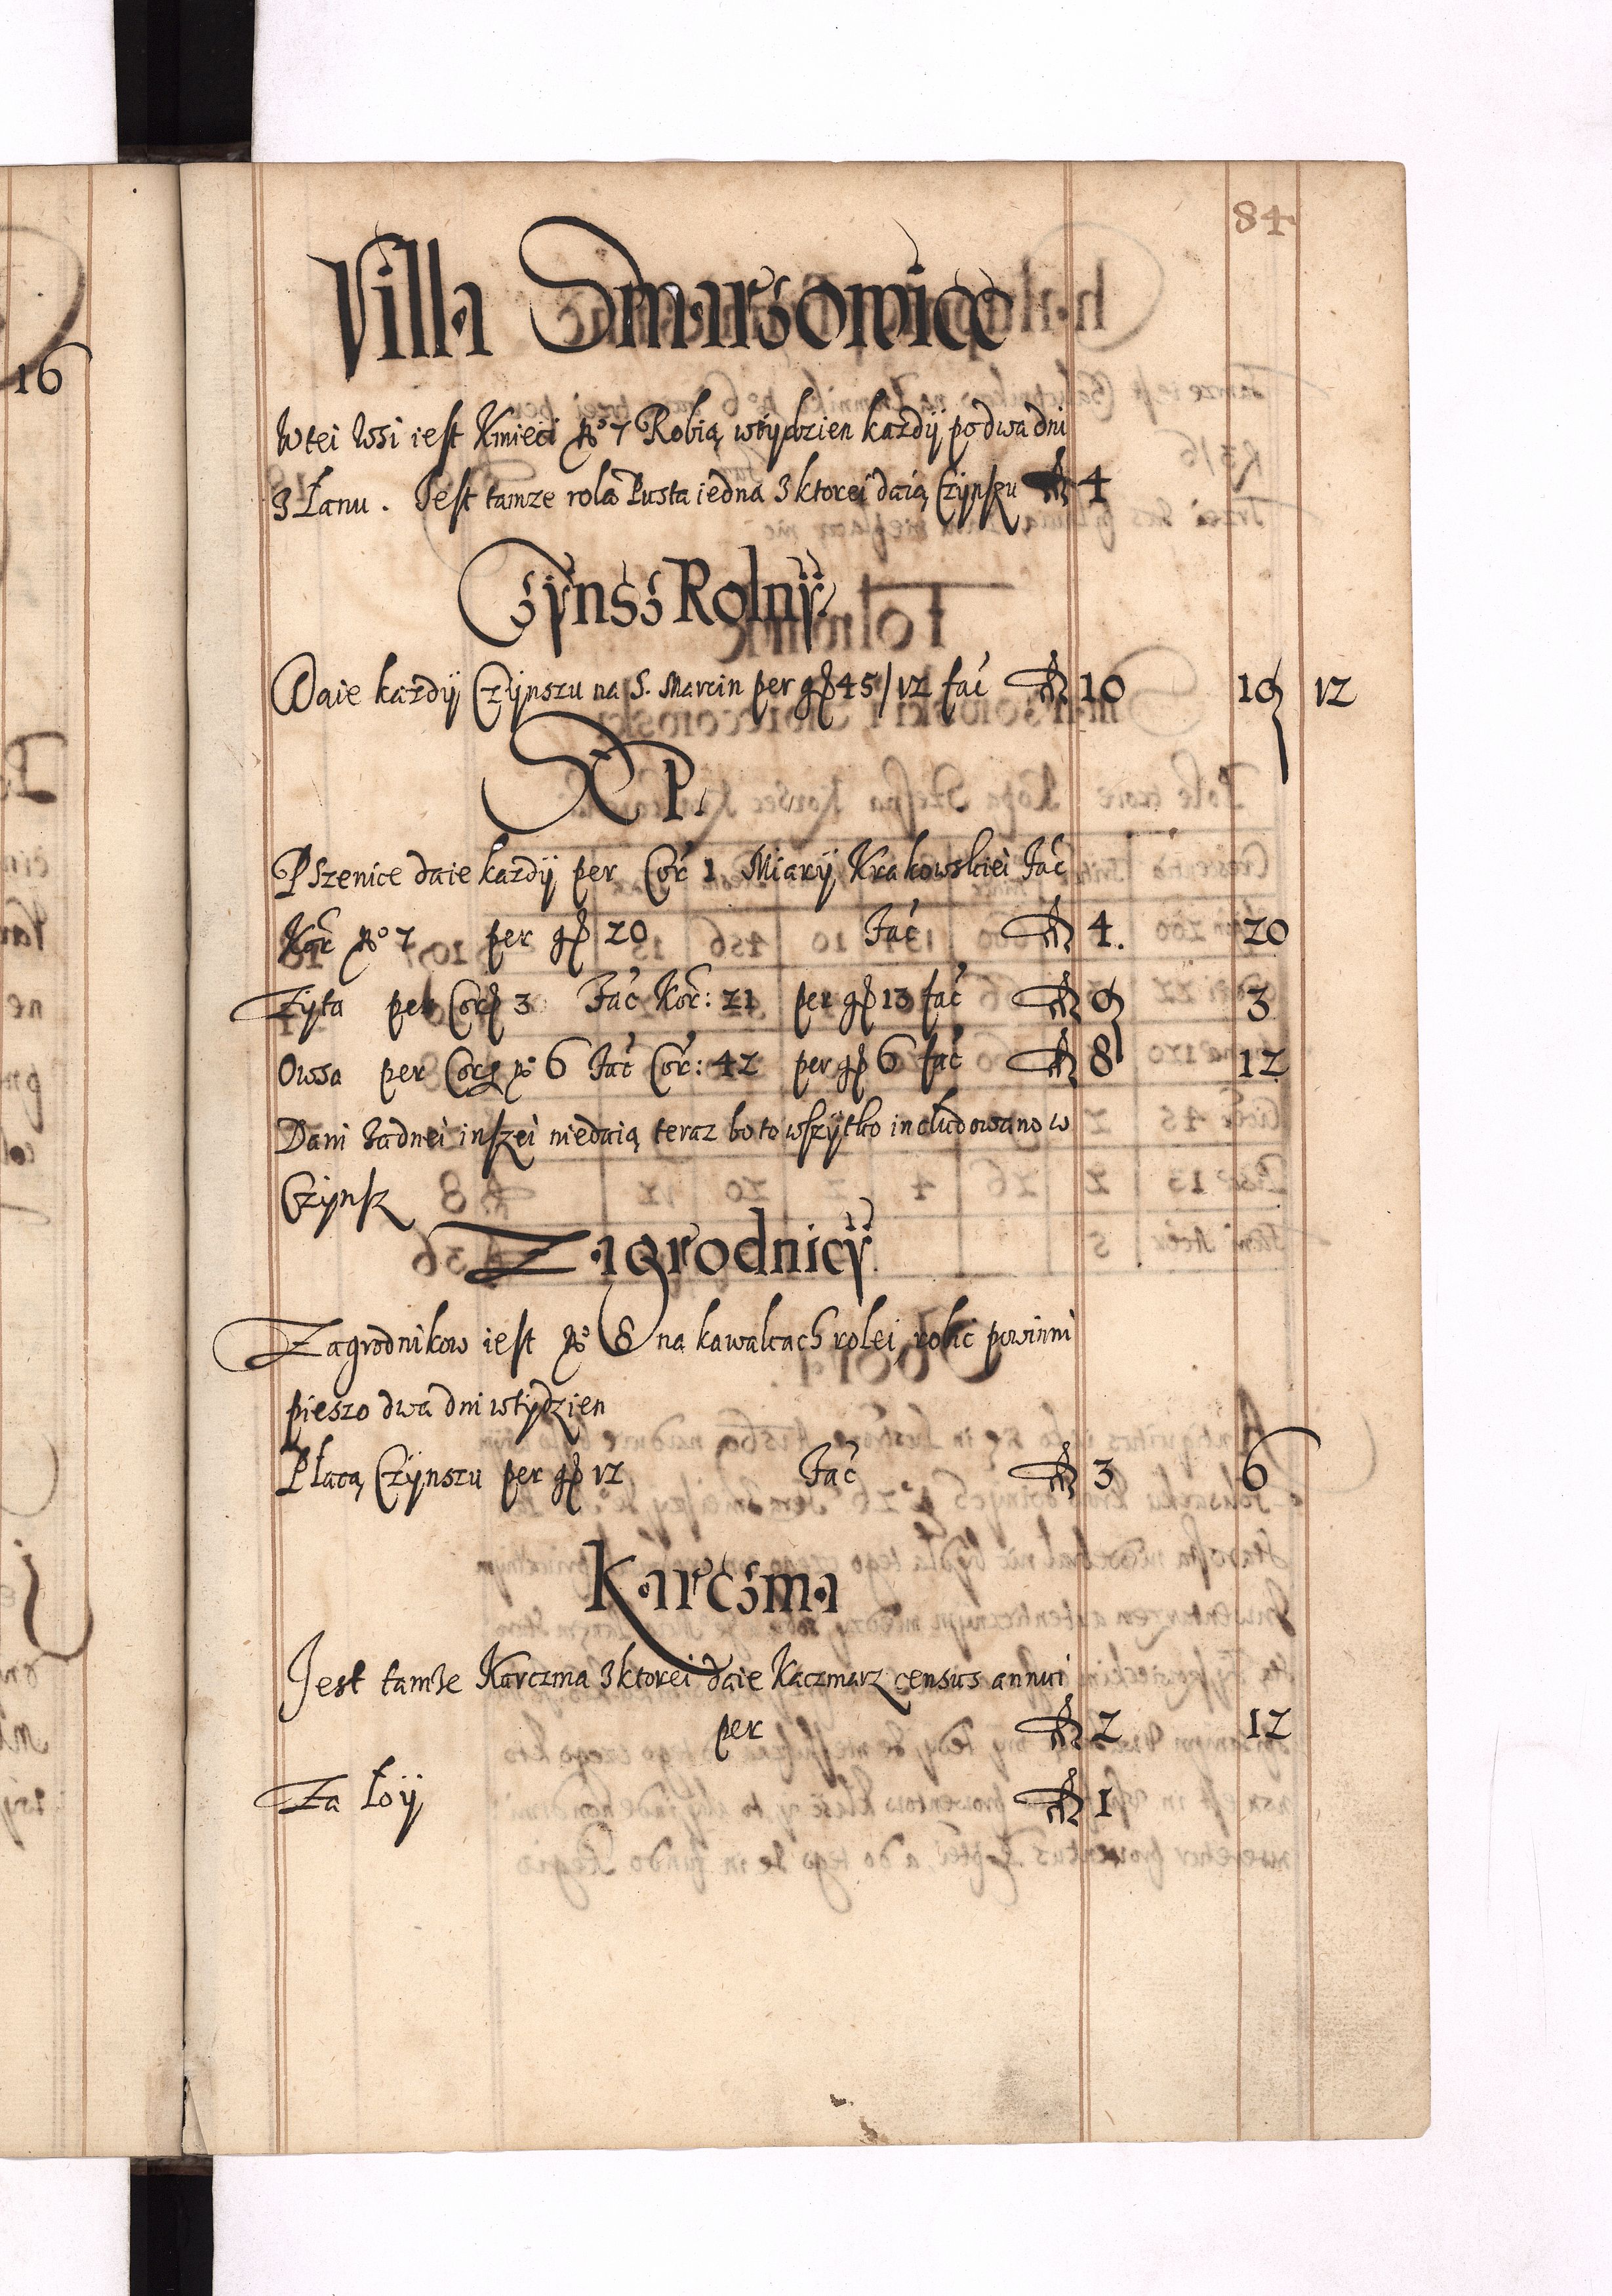 84.
Villa Smarzowice
W tei Wsi iest Kmieci No 7 Robią w tydzien kazdÿ po dwa dni
z Łanu. Jest tamze rola Pusta iedna z ktorei daią Czÿnszu fl 4
Czÿnsz Rolnÿ
Daie kazdÿ Czÿnszu na S. Marcin per gr 45/12 fać fl 10 19 12
SEP.
Pszenice daie kazdÿ per Cor 1 Miarÿ Krakowskiei fać
Kor No 7 per gr 20 fać fl 4. 20
Zÿta per Cor 3 fać Kor: 21 per gr 13 fać fl 9 3
Owsa per Cor No 6 fać Cor: 42 per gr 6 fać fl 8 12
Dani zadnei inszei niedaią teraz bo to wszÿtko includowano w
Czÿnsz
Zagrodnicÿ
Zagrodnikow iest No 8 na kawalcach rolei robic powinni
pieszo dwa dni w tÿdzien
Płacą Czÿnszu per gr 12 fać fl 3 6
Karczma
Jest tamze Karczma z ktorei daie Kaczmarz census annui
per fl 2 12
Za Łoÿ fl 1
16